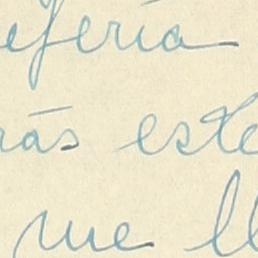 efería
rás este
me ll